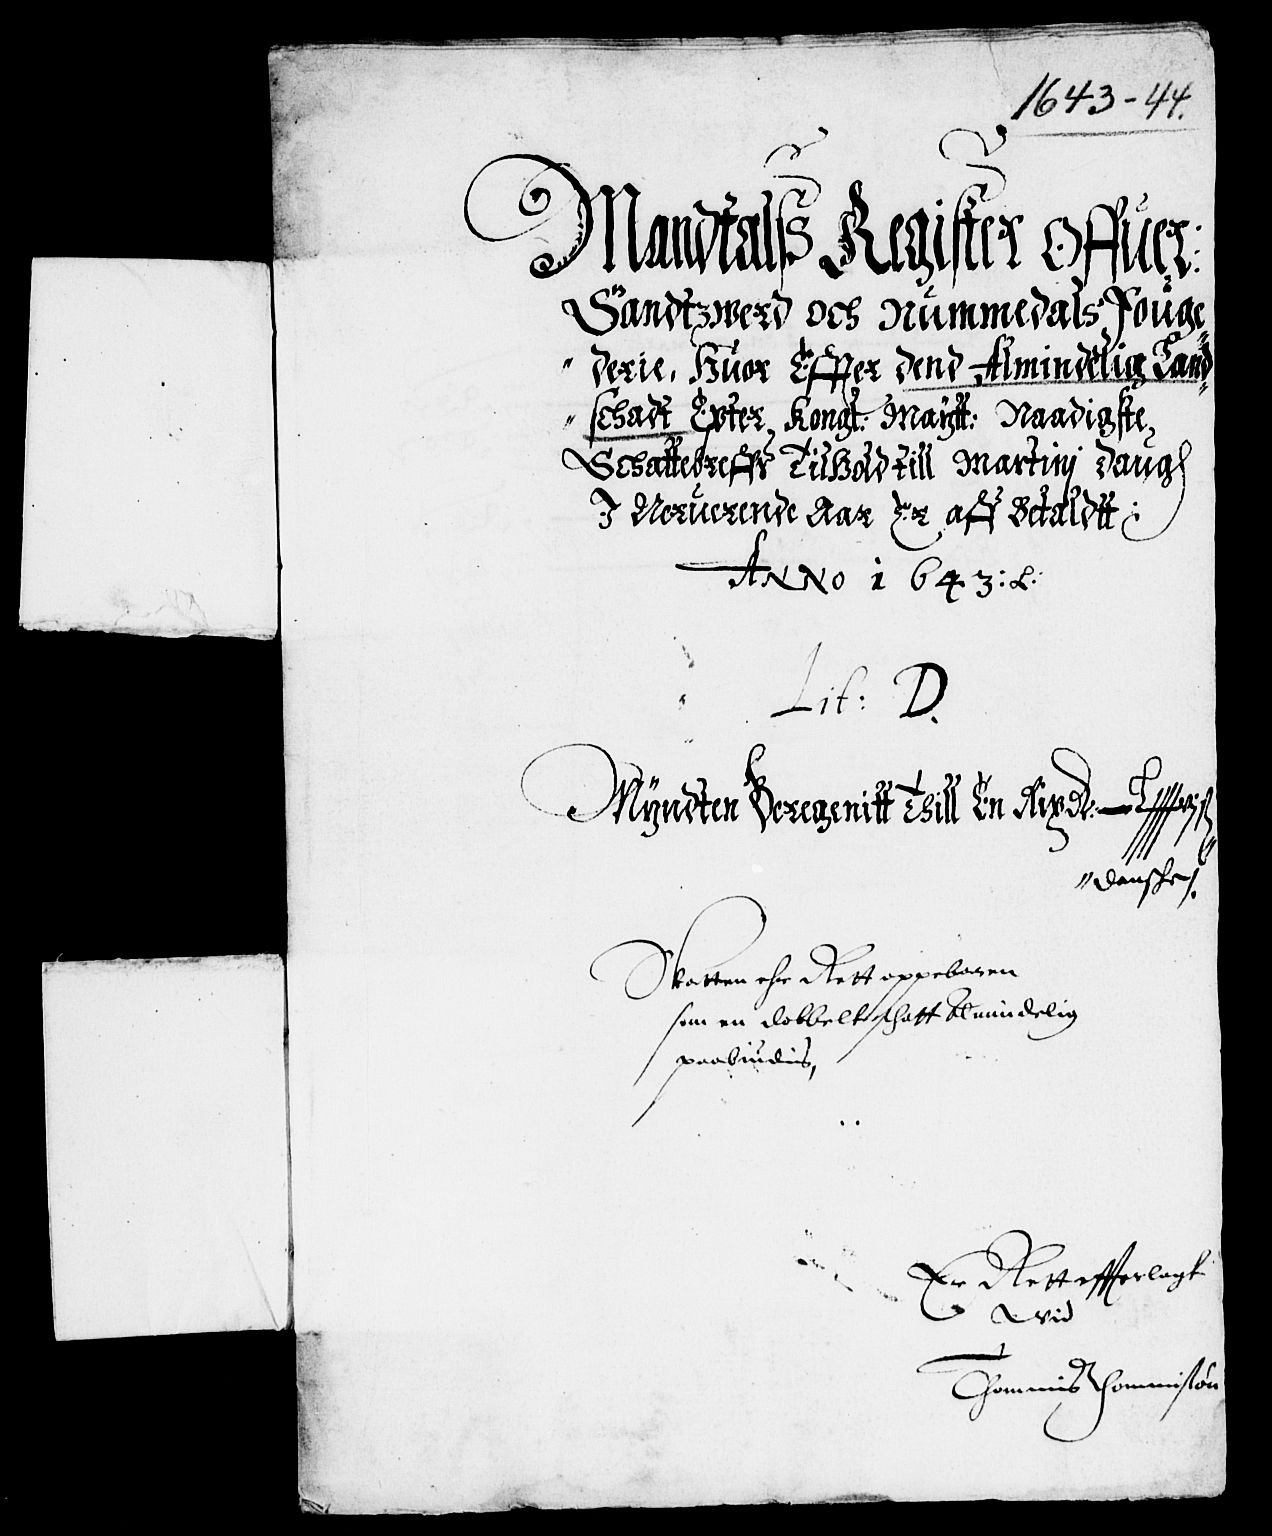 1643-44.
Mandtalss Register Offuer:
Sandtzwerd och Nummedals Fouge
" derie, Huor Effter dend Almindelig Land"
" schadt Epter, Kongl: Maÿtt: Naadigste,
Schattebreffs Tilhold till Martinj Daug
I Neruerende Aar Er aff Betaldtt:
ANNO 1643:
Lit: D.
Mÿndten Beregenitt Thill En Rixdr:
" danske.
Skatten ehr Rett oppeboren
som en dobbelt schatt Almindelig
paabudius,
Er Rett effterlagt
Wid
Thommis Thommisøn